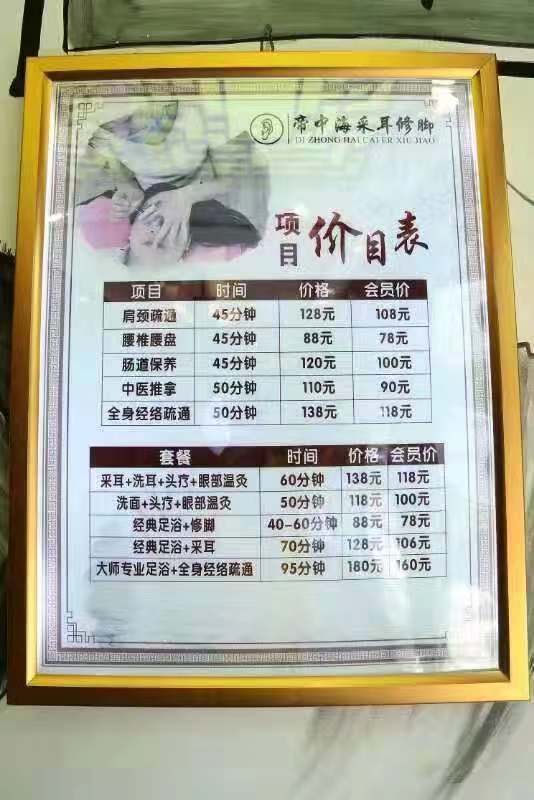 帝中海采耳修脚
DI ZHONG HAI CAI ER XIU JIAO
项目价目表
项目 时间 价格 会员价
肩颈疏通 45分钟 128元 108元
腰椎腰盘 45分钟 88元 78元
肠道保养 45分钟 120元 100元
中医推拿 50分钟 110元 90元
全身经络疏通 50分钟 138元 118元
套餐 时间 价格 会员价
采耳+洗耳+头疗+眼部温灸 60分钟 138元 118元
洗面+头疗+眼部温灸 50分钟 118元 100元
经典足浴+修脚 40-60分钟 88元 78元
经典足浴+采耳 70分钟 128元 106元
大师专业足浴+全身经络疏通 95分钟 180元 160元